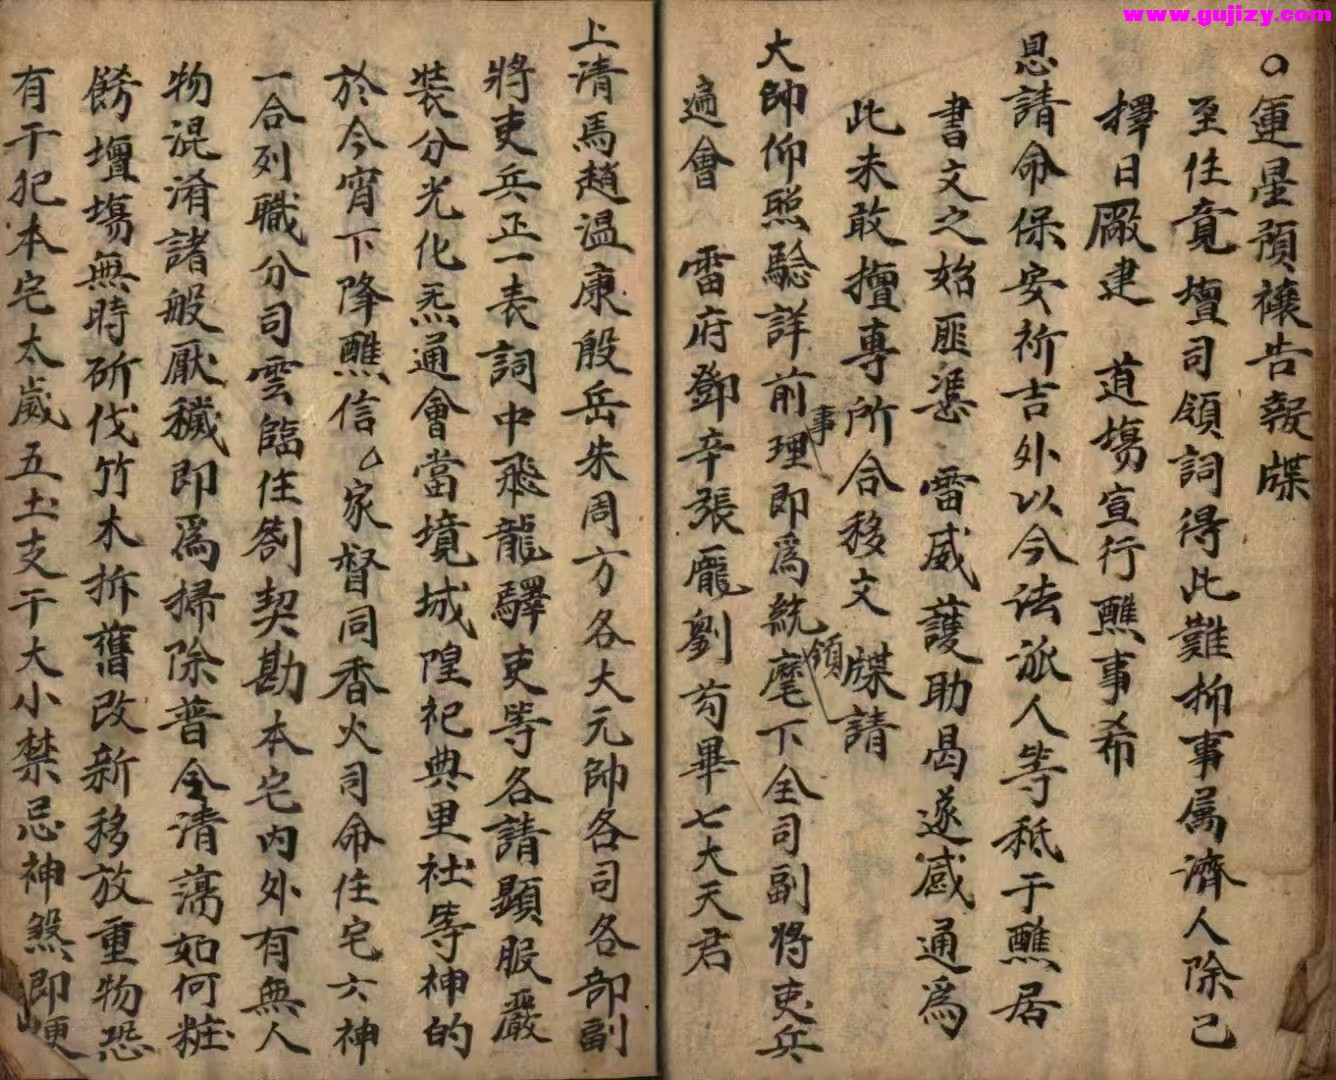 www.gujizy.com
○運星預禳告報牒
至住竟壇司領詞得此難抑事属濟人除已
擇日厰建 道塲宣行醮事希
恩請命保安祈吉外以今法派人等秪于醮居
書文之始匪凴 雷威護助曷遂感通爲
此未敢擅專所合移文牒請
大帥仰照驗詳前事理即爲統領麾下全司副將吏兵
遍會 雷府鄧辛張龐劉苟畢七大天君
上清馬趙温康殷岳朱周方各大元帥各司各部副
將吏兵正一表詞中飛龍驛吏等各請顕服嚴
裝分光化炁通會當境城隍祀典里社等神的
於今宵下降醮信厶家督同香火司命住宅六神
一合列職分司雲臨住劄契勘本宅内外有無人
物混淆諸般厭穢即爲掃除普令清蕩如何粧
餝壇塲無時斫伐竹木拆舊改新移放重物恐
有干犯本宅太歲五土支干大小禁忌神煞即便